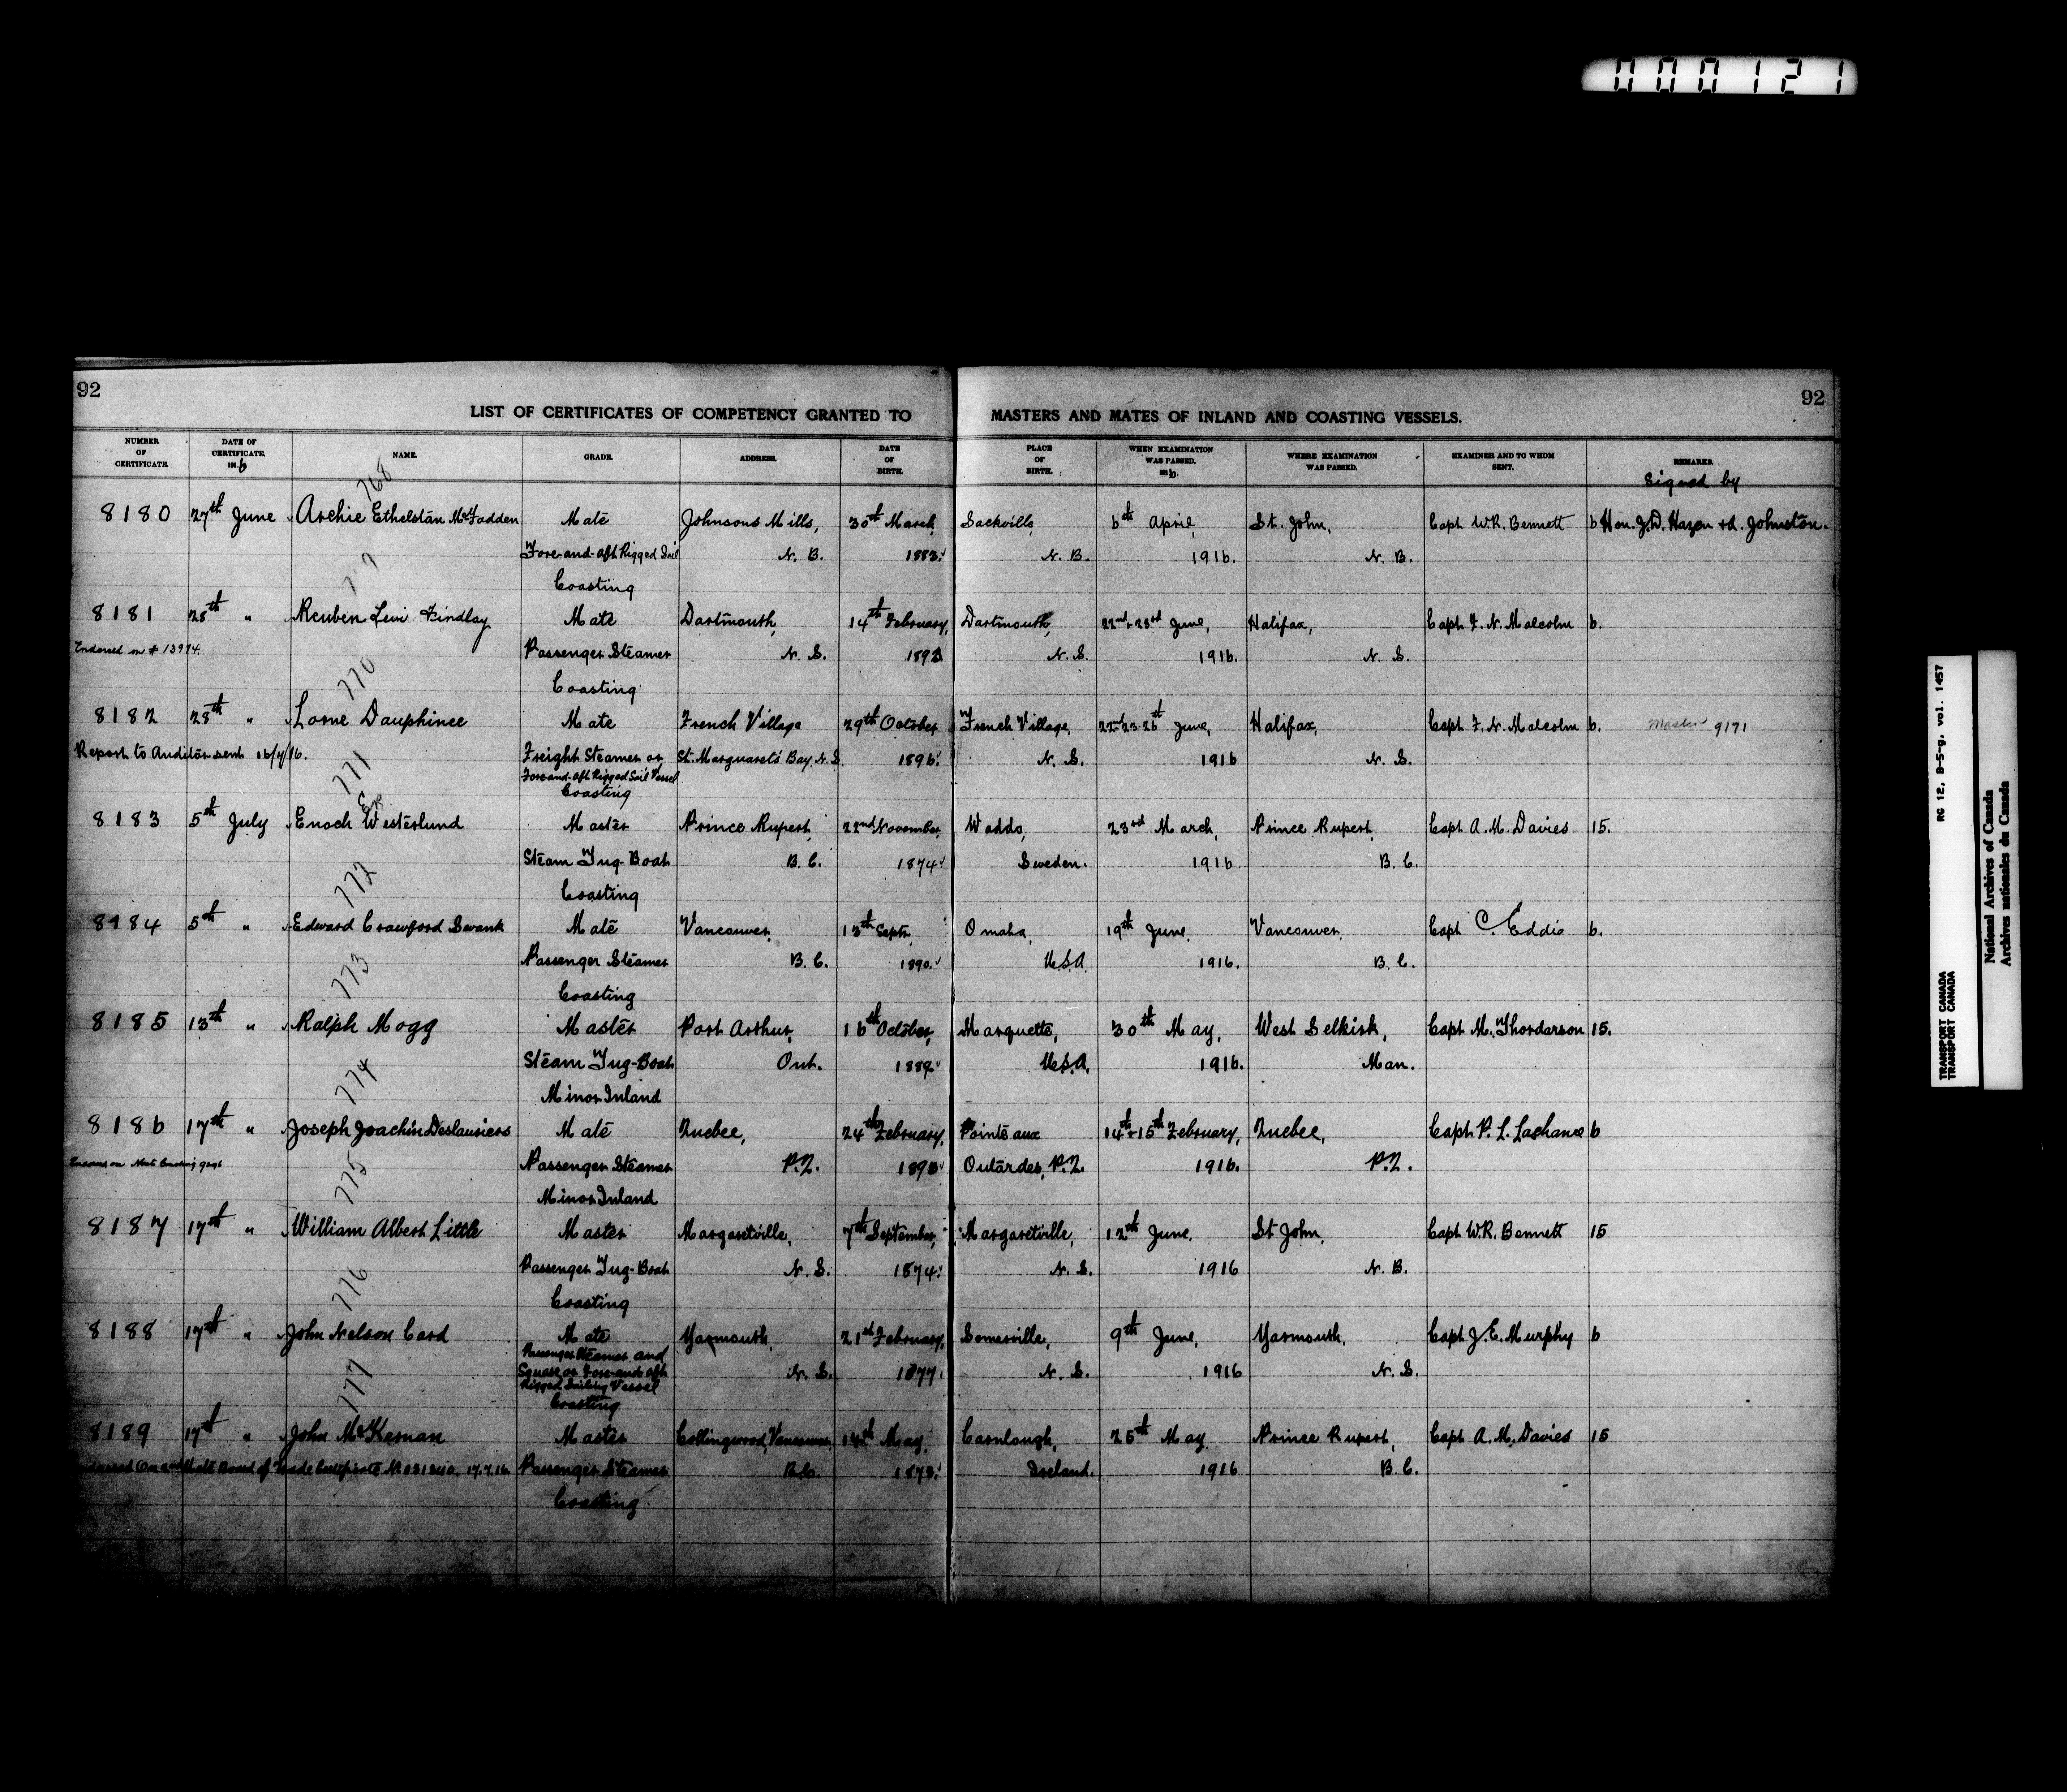 000121
92
92
LIST OF CERTIFICATES OF COMPETENCY GRANTED TO MASTERS AND MATES OF INLAND AND COASTING VESSELS.
NUMBER OF CERTIFICATE. DATE OF CERTIFICATE. 191.6 NAME. GRADE. ADDRESS. DATE OF BIRTH. PLACE OF BIRTH. WHEN EXAMINATION WAS PASSED. 1916. WHERE EXAMINATION WAS PASSED. EXAMINER AND TO WHOM SENT. REMARKS.
Signed by
768
8180 27th June Archie Ethelstan McFadden Mate Johnsons Mills, 30th March, Sackville, 6th April, St. John, Capt W.R. Bennett 6 Hon. J.D. Hazen + A. Johnston.
Fore-and-aft Rigged Sail N. B. 1883. N. B. 1916. N. B.
Coasting
8181 28th " Reuben Levi Findlay Mate Dartmouth, 14th February, Dartmouth, 22nd-23rd June, Halifax, Capt F. N. Malcolm 6.
Endorsed on # 13974. Passenger Steamer N. S. N. S. 1916. N. S.
Coasting
770
8182 28th " Lorne Dauphinee Mate French Village 29th October French Village, June, Halifax, Capt F. N. Malcolm 6. Master 9171
Report to Auditor sent 16/7/16. Freight Steamer or St. Margaret's Bay, N.S. 1896. N. S. 1916 N. S.
Fore-and-aft Rigged Sail Vessel
Coasting
771
8183 5th July Enoch Westerlund Master Prince Rupert, 22nd November, Waddo, 23rd March, Prince Rupert, Capt A. M. Davies 15.
Steam Tug-Boat B. C. 1874. Sweden. 1916 B. C.
Coasting
772
8184 5th " Edward Crawford Swank Mate Vancouver, 13th Sept, Omaha, 19th June, Vancouver, Capt C. Eddie 6.
Passenger Steamer B. C. 1890. U.S.A. 1916. B. C.
Coasting
773
8185 13th " Ralph Mogg Master Port Arthur, 16th October, Marquette, 30th May, West Selkirk, Capt M. Thordarson 15.
Steam Tug-Boat Ont. 1889 U.S.A. 1916. Man.
Minor Inland
774
8186 17th " Joseph Joachin Deslauriers Mate Quebec, 24th February, Pointe aux 14th-15th February, Quebec, Capt P. L. Lachance 6
Passenger Steamer P.Q. Outardes, P.Q. 1916. P.Q.
Minor Inland
775
8187 17th " William Albert Little Master Margaretville, 7th September, Margaretville, 12th June, St John, Capt W.R. Bennett 15
Passenger Tug-Boat N. S. 1874. N. S. 1916 N. B.
Coasting
776
8188 17th " John Nelson Card Mate Yarmouth, 21st February, Somerville, 9th June, Yarmouth, Capt J. E. Murphy 6
Passenger Steamer and N. S. 1877. N. S. 1916 N. S.
Square or Fore-and-aft
Rigged Sailing Vessel
Coasting
777
8189 17th " John McKernan Master Collingwood, Vancouver 14th May, Carnlough, 25th May, Prince Rupert, Capt A. M. Davies 15
Board of Trade Certificate 17.7.16 Passenger Steamer B.C. 1873. Ireland. 1916 B. C.
Coasting
RG 12, B-5-g, vol. 1457
TRANSPORT CANADA
TRANSPORT CANADA
National Archives of Canada
Archives nationales du Canada